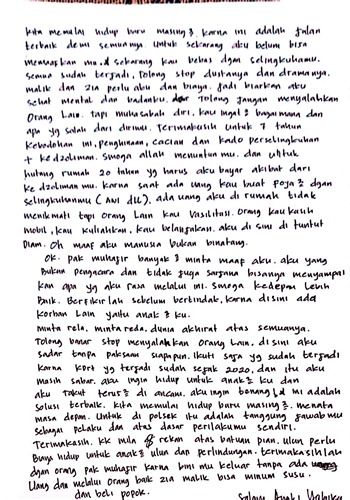 kita memulai hidup baru masing². karna ini adalah jalan
terbaik demi semuanya. Untuk sekarang aku belum bisa
memaafkan mu. & sekarang kau bebas dgan selingkuhamu.
semua sudah terjadi. Tolong stop dustanya dan dramanya.
malik dan zia perlu abu dan biaya. Jadi biarkan aku
sehat mental dan badanku. Tolong jangan menyalahkan
Orang Lain. tapi muhasabah diri, kau ingat² bagaimana dan
apa yg salah dari dirimu. Terimakasih untuk 7 tahun
kebodohan ini, penghinaan, cacian dan kado perselingkuhan
+ kedzoliman. Smoga allah menuntun mu. dan untuk
hutang rumah 20 tahun yg harus aku bayar akibat dari
kedzoliman mu. karna saat ada uang kau buat foya² dgan
selingkuhanmu (Ani dll). ada uang aku di rumah tidak
menikmati tapi Orang Lain kau Fasilitasi. Orang kau kasih
mobil, kau kuliahkan, kau belanjakan. aku di sini di tuntut
Diam. Oh maaf aku manusia bukan binatang.
OK. pak muhajir banyak² minta maaf aku. aku yang
Bukan pengacara dan tidak juga sarjana bisanya menyampai
kan apa yg aku rasa melalui ini. Smoga kedepan Lebih
Baik. Berfikirlah sebelum bertindak, karna disini ada
korban Lain yaitu anak² ku.
minta rela. minta reda. dunia akhirat atas semuanya.
Tolong benar stop menyalahkan Orang Lain. di sini aku
sadar tanpa paksaan siapapun. Ikuti saja yg sudah terjadi
karna KDRT yg terjadi sudah sejak 2020, dan itu aku
masih sabar. aku ingin hidup untuk anak² ku dan
aku takut terus² di ancam. aku ingin tenang & ini adalah
solusi terbaik. kita memulai hidup baru masing². menata
masa depan. Untuk di polsek itu adalah tanggung jawabmu
sebagai pelaku dan atas dasar perilakumu sendiri.
Terimakasih. kk mila & rekan atas batuan pian. ulun perlu
Biaya hidup untuk anak² ulun dan perlindungan. terimakasihlah
dgan orang pak muhajir karna bini mu keluar tanpa ada
Uang dan melalui orang baik zia malik bisa minum susu.
dan beli popok.